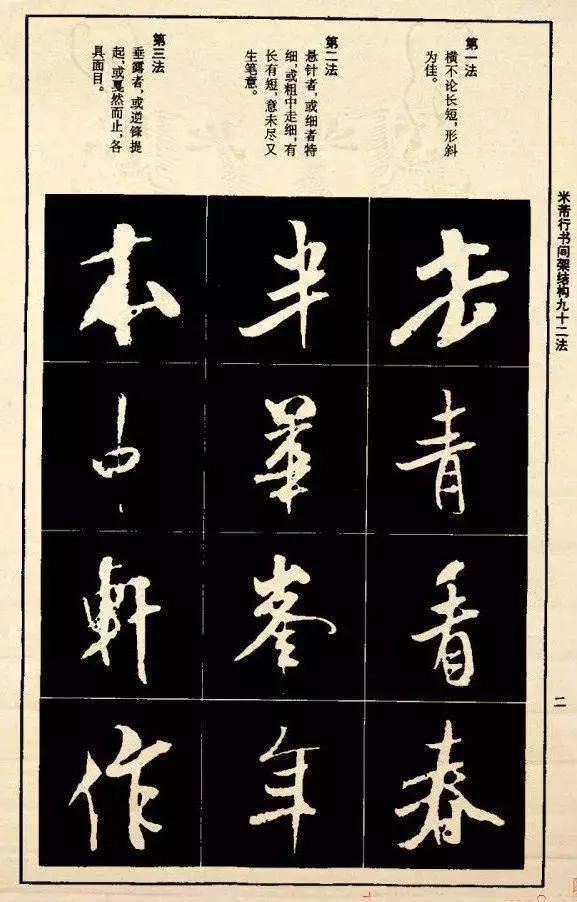 米芾行书间架结构九十二法
第一法
横不论长短，形斜
为佳。
第二法
悬针者，或细者特
细，或粗中走细，有
长有短，意未尽又
生笔意。
第三法
垂露者，或逆锋提
起，或戛然而止，各
具面目。
去青看春
半華峯年
本中軒作
二